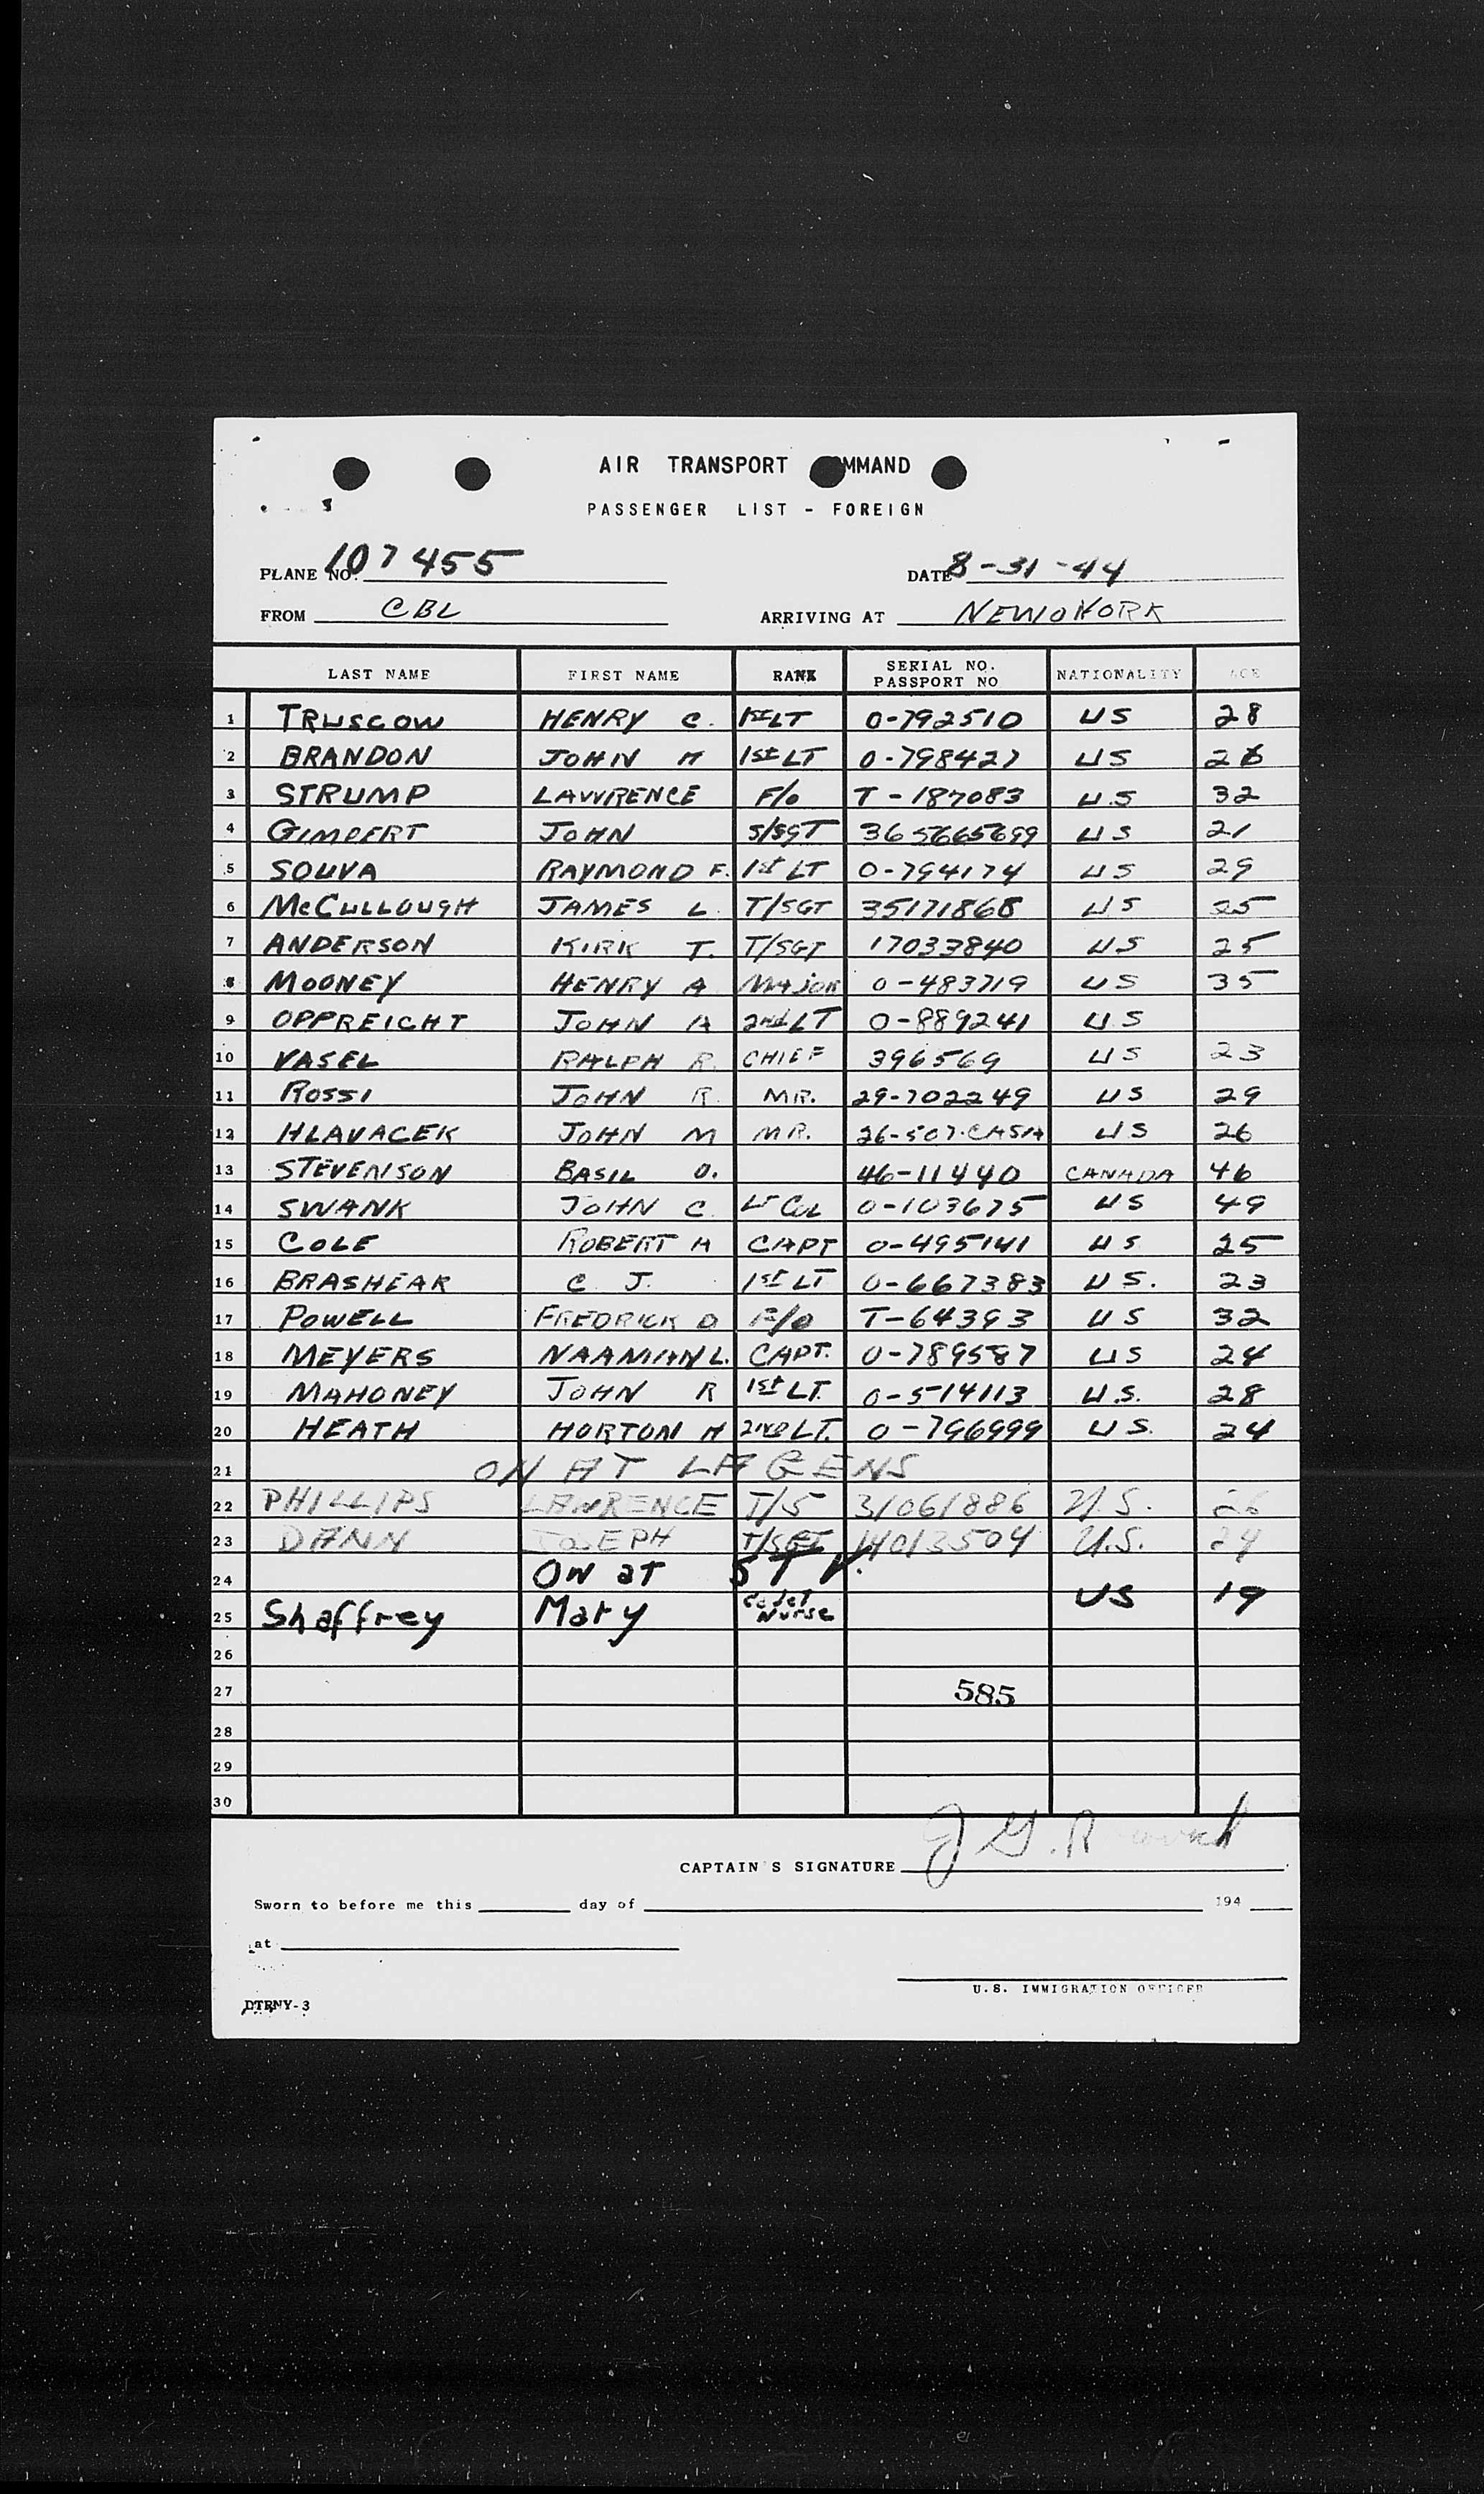 AIR TRANSPORT COMMAND
PASSENGER LIST - FOREIGN
PLANE NO. 107455 DATE 8-31-44
FROM CBL ARRIVING AT NEW YORK
LAST NAME FIRST NAME RANK SERIAL NO. PASSPORT NO NATIONALITY AGE
1 TRUSCOW HENRY C. 1st LT 0-792510 US 28
2 BRANDON JOHN H 1st LT 0-798427 US 26
3 STRUMP LAWRENCE F/O T-187083 U.S 32
4 GIMPERT JOHN S/SGT 365665699 US 21
5 SOUVA RAYMOND F. 1st LT 0-794174 US 29
6 McCULLOUGH JAMES L. T/SGT 35171868 US 25
7 ANDERSON KIRK T. T/SGT 17033840 US 25
8 MOONEY HENRY A MAJOR 0-483719 US 35
9 OPPREICHT JOHN A 2nd LT 0-889241 US
10 VASEL RALPH R. CHIEF 396569 US 23
11 ROSSI JOHN R. MR. 29-702249 US 29
12 HLAVACEK JOHN M MR. 26-507-CASA US 26
13 STEVENSON BASIL O. 46-11440 CANADA 46
14 SWANK JOHN C. LT COL 0-103675 US 49
15 COLE ROBERT H CAPT 0-495141 US 25
16 BRASHEAR C J. 1st LT 0-667383 US. 23
17 POWELL FREDRICK D F/O T-64393 US 32
18 MEYERS NAAMAN L. CAPT. 0-789587 US 24
19 MAHONEY JOHN R 1st LT. 0-514113 U.S. 28
20 HEATH HORTON H 2nd LT. 0-796999 US. 24
21 ON AT LAGENS
22 PHILLIPS LAWRENCE T/5 31061886 U.S. 26
23 DANN JOSEPH T/SGT 14013504 U.S. 24
24 ON at STV.
25 Shaffrey Mary Cadet Nurse US 19
26
27 585
28
29
30
CAPTAIN'S SIGNATURE J G. R
Sworn to before me this day of 194
at
U.S. IMMIGRATION OFFICER
DTRNY-3